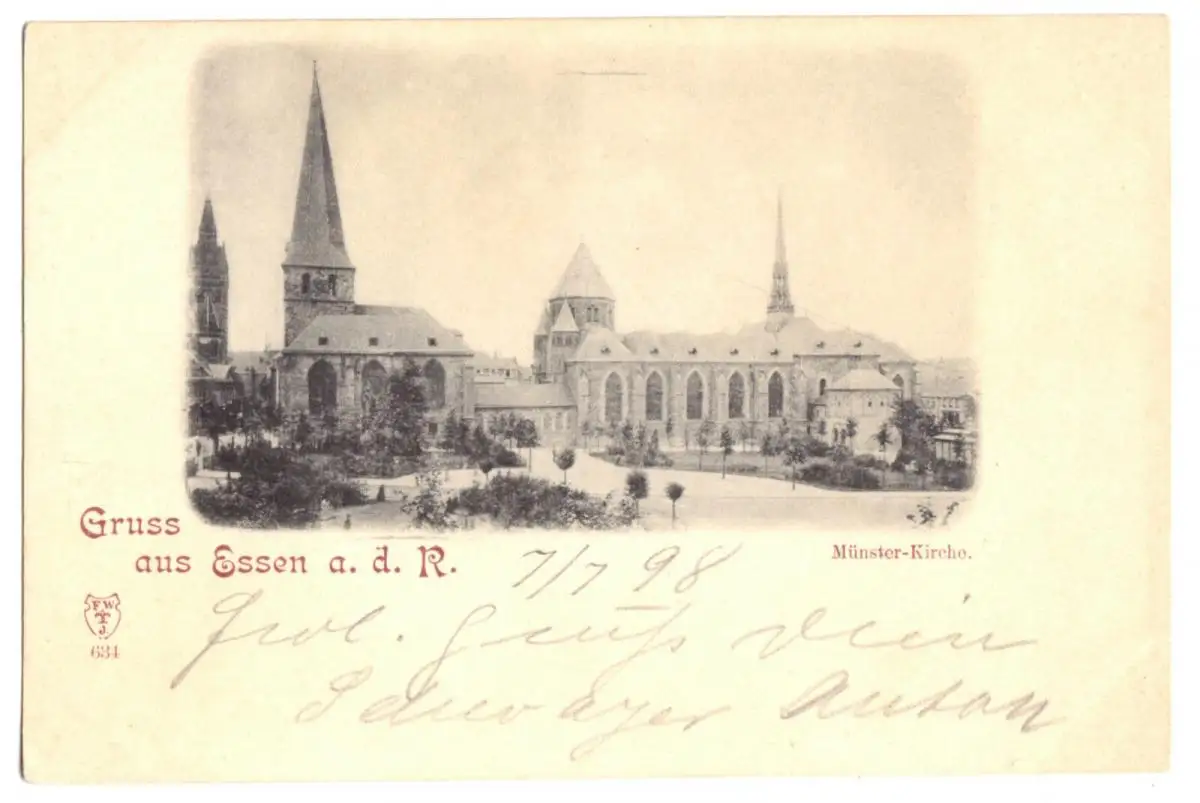 Gruss
aus Essen a. d. R.
Münster-Kirche.
7/7 98
FW
J
634
Gruß Dein
Schwager Anton